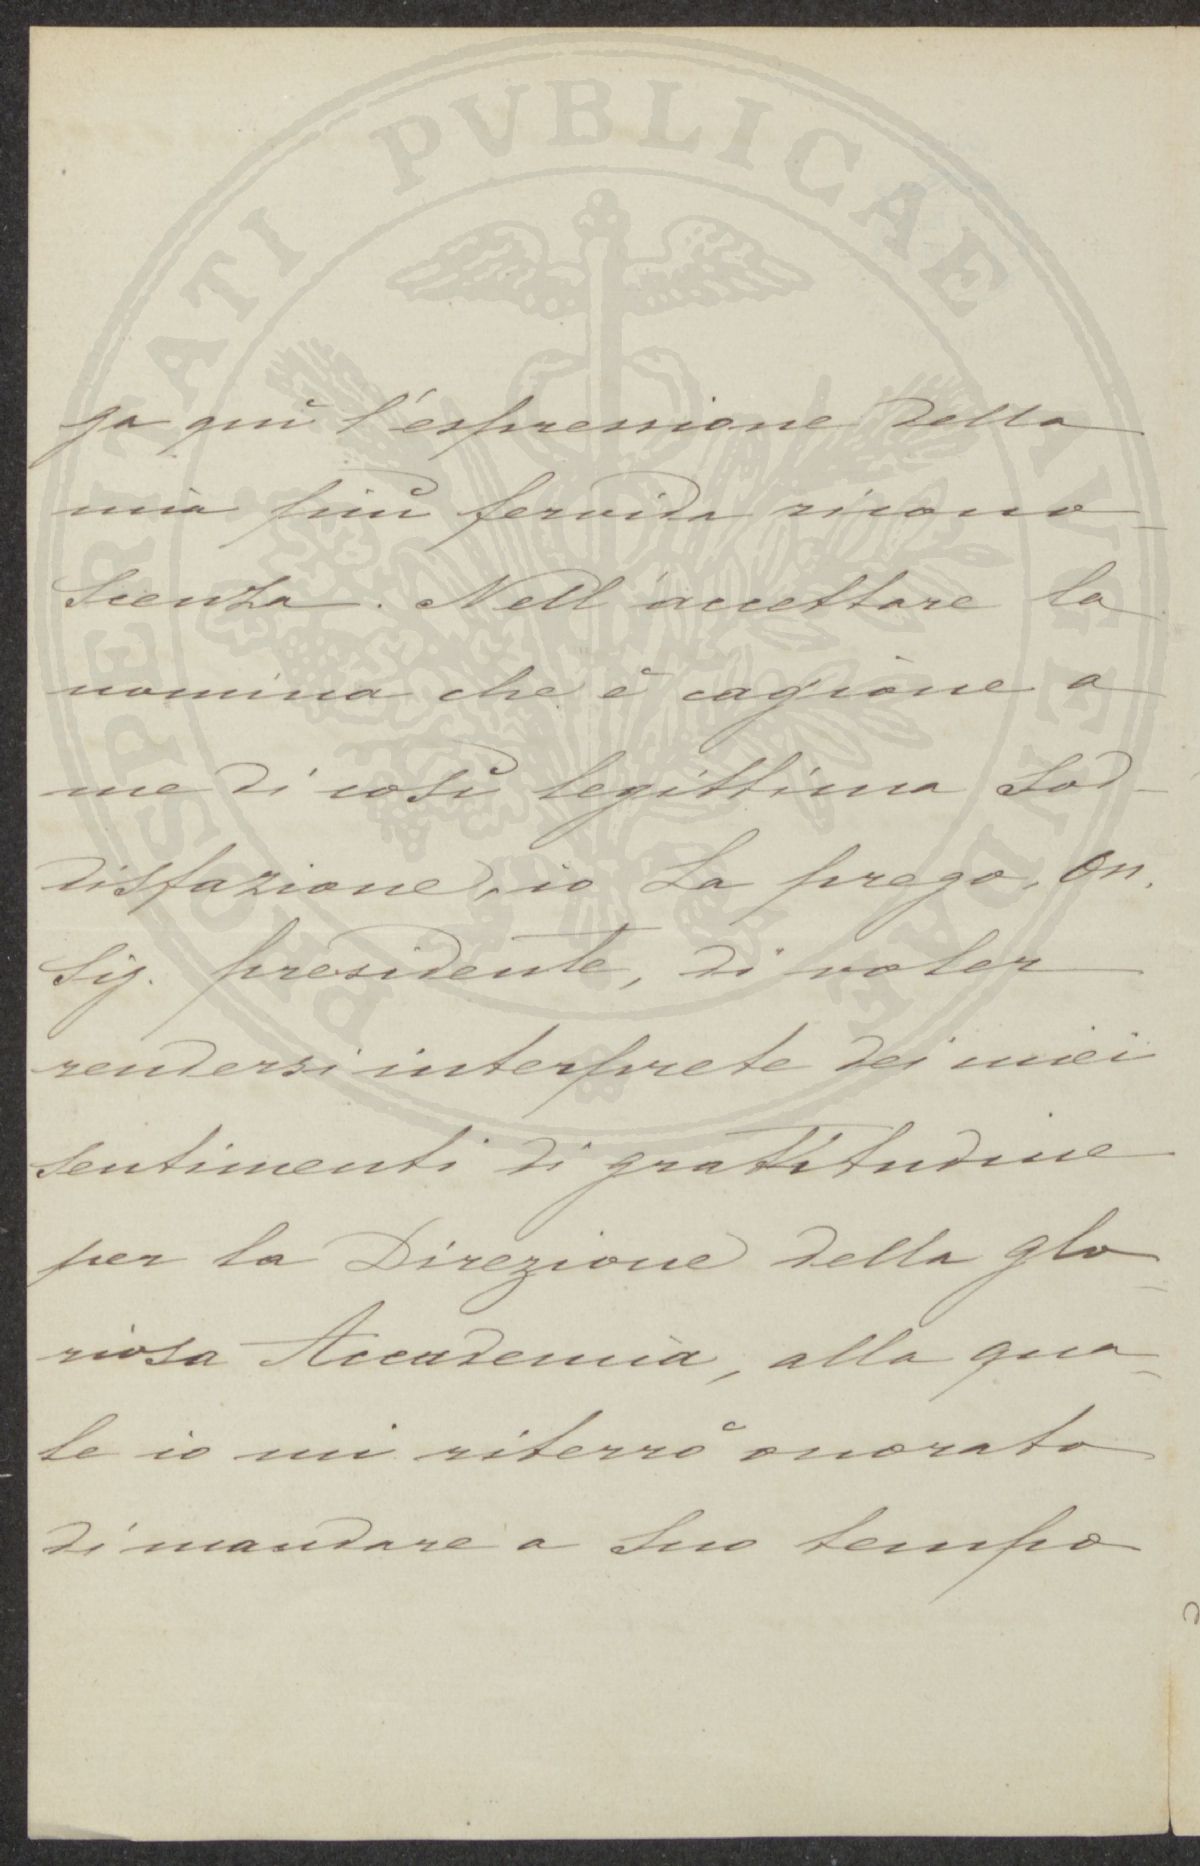 PROSPERITATI PVBLICAE AVGENDAE
ga quì l'espressione della
mia più fervida ricono-
scenza. Nell'accettare la
nomina che è cagione a
me di così legittima sod-
disfazione, io La prego, On.
Sig. presidente, di voler
rendersi interprete dei miei
sentimenti di grattitudine
per la Direzione della glo-
riosa Accademia, alla qua-
le io mi riterrò onorato
di mandare a suo tempo